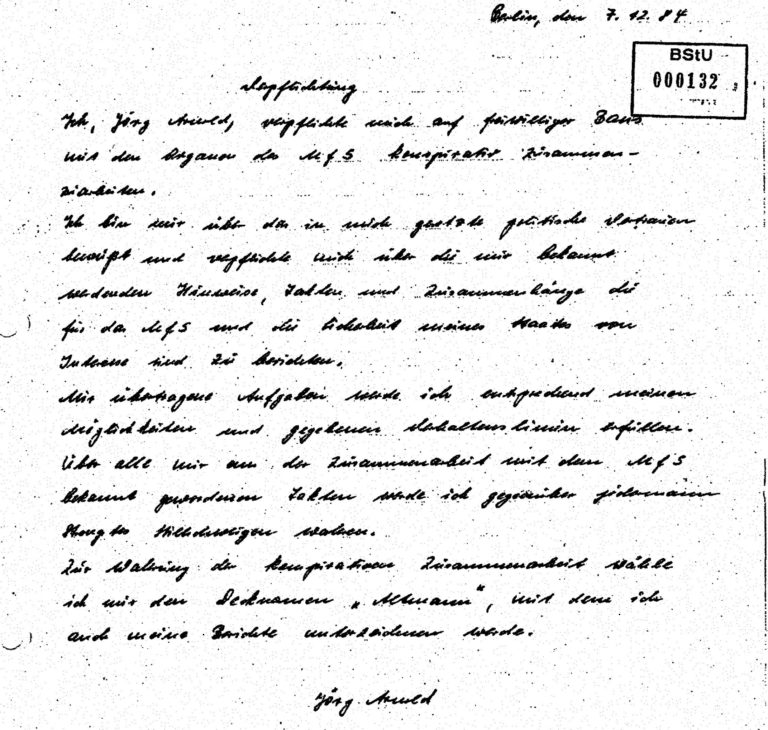 Berlin, den 7.12.84
BStU
000132
Verpflichtung
Ich, Jörg Arnold, verpflichte mich auf freiwilliger Basis
mit den Organen des MfS konspirativ zusammen-
zuarbeiten.
Ich bin mir über das in mich gesetzte politische Vertrauen
bewußt und verpflichte mich über die mir bekannt
werdenden Hinweise, Fakten und Zusammenhänge die
für das MfS und die Sicherheit meines Staates von
Interesse sind zu berichten.
Mir übertragene Aufgaben werde ich entsprechend meinen
Möglichkeiten und gegebenen Verhaltenslinien erfüllen.
Über alle mir aus der Zusammenarbeit mit dem MfS
bekannt gewordenen Fakten werde ich gegenüber jedermann
strengstes Stillschweigen wahren.
Zur Wahrung der konspirativen Zusammenarbeit wähle
ich mir den Decknamen „Altmann", mit dem ich
auch meine Berichte unterzeichnen werde.
Jörg Arnold